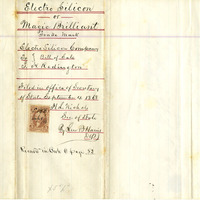 Electro Silicon
or
Magic Brilliant
Trade Mark
Electro Silicon Company
To } Bill of Sale
J. H. Redington
Filed in office of Secretary
of State September 4 1868
H. L. Nichols
Sec. of State
By Geo. B. Harris
Dep.
Record in Book